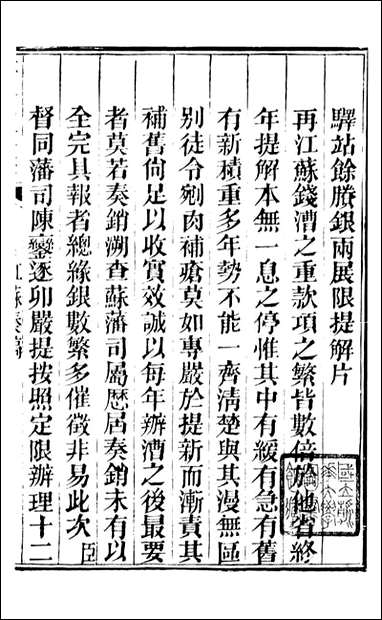 驛站餘賸銀兩展限提解片
再江蘇錢漕之重款項之繁皆數倍於他省終
年提解本無一息之停惟其中有緩有急有舊
有新積重多年勢不能一齊清楚與其漫無區
別徒令剜肉補瘡莫如專嚴於提新而漸責其
補舊尙足以收實效誠以每年辦漕之後最要
者莫若奏銷溯查蘇藩司屬歷居奏銷未有以
全完具報者總緣銀數繁多催徵非易此次臣
督同藩司陳鑾逐卯嚴提按照定限辦理十二
江蘇奏稿